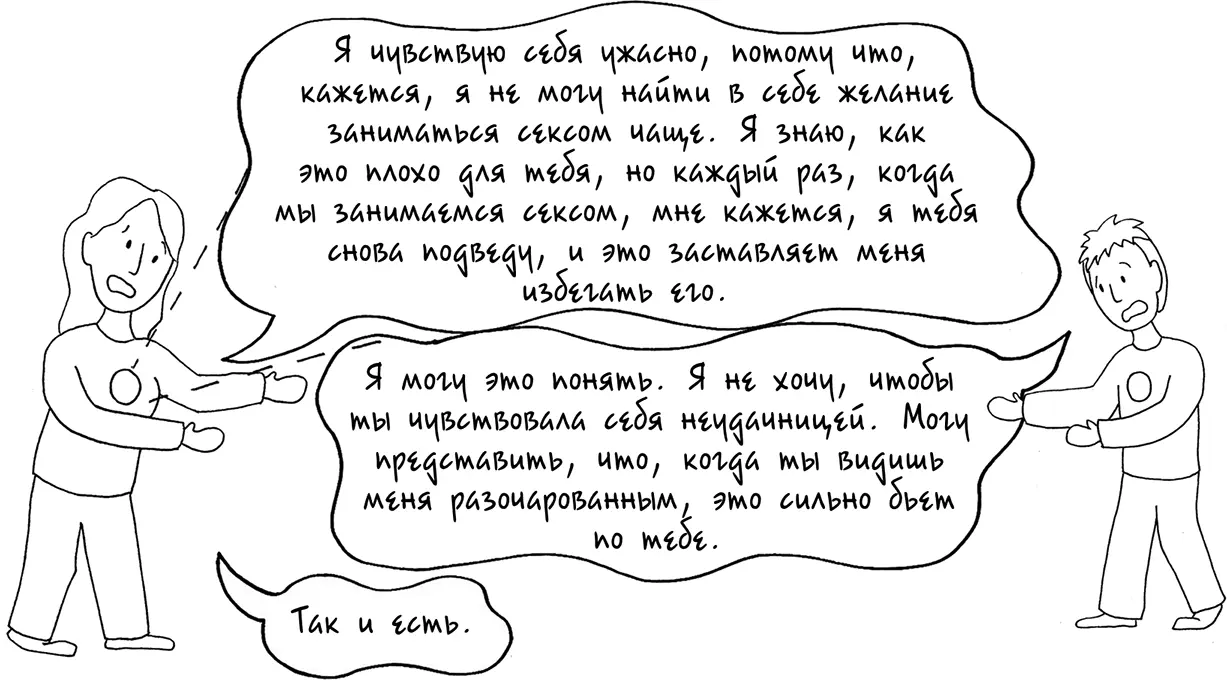 Я чувствую себя ужасно, потому что,
кажется, я не могу найти в себе желание
заниматься сексом чаще. Я знаю, как
это плохо для тебя, но каждый раз, когда
мы занимаемся сексом, мне кажется, я тебя
снова подведу, и это заставляет меня
избегать его.
Я могу это понять. Я не хочу, чтобы
ты чувствовала себя неудачницей. Могу
представить, что, когда ты видишь
меня разочарованным, это сильно бьет
по тебе.
Так и есть.